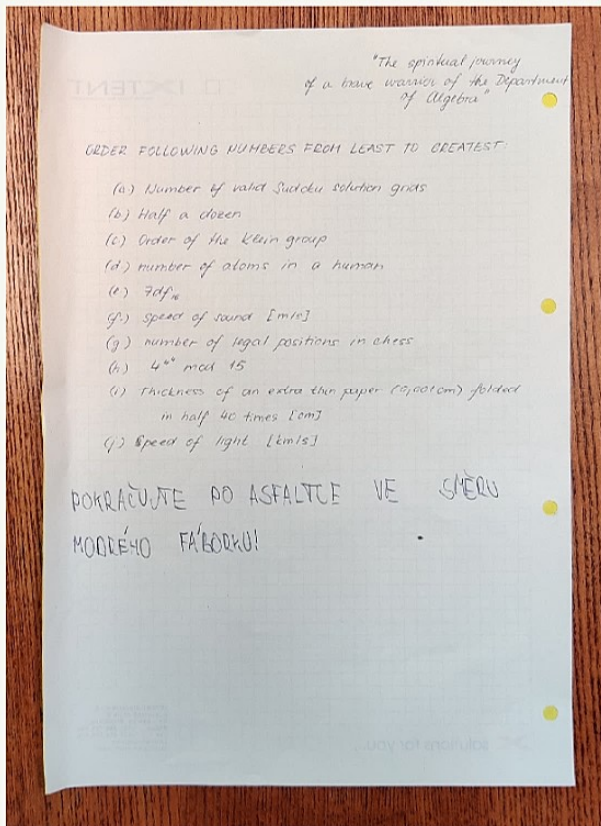 "The spiritual journey
of a brave warrior of the Department
of Algebra"
ORDER FOLLOWING NUMBERS FROM LEAST TO GREATEST:
(a) Number of valid Sudoku solution grids
(b) Half a dozen
(c) Order of the Klein group
(d) number of atoms in a human
(e) 7df₁₆
(f) speed of sound [m/s]
(g) number of legal positions in chess
(h) mod 15
(i) Thickness of an extra thin paper (0,001cm) folded
in half 40 times [cm]
(j) Speed of light [km/s]
POKRAČUJTE PO ASFALTCE VE SMĚRU
MODRÉHO FÁBORKU!
IXTENT
solutions for you...